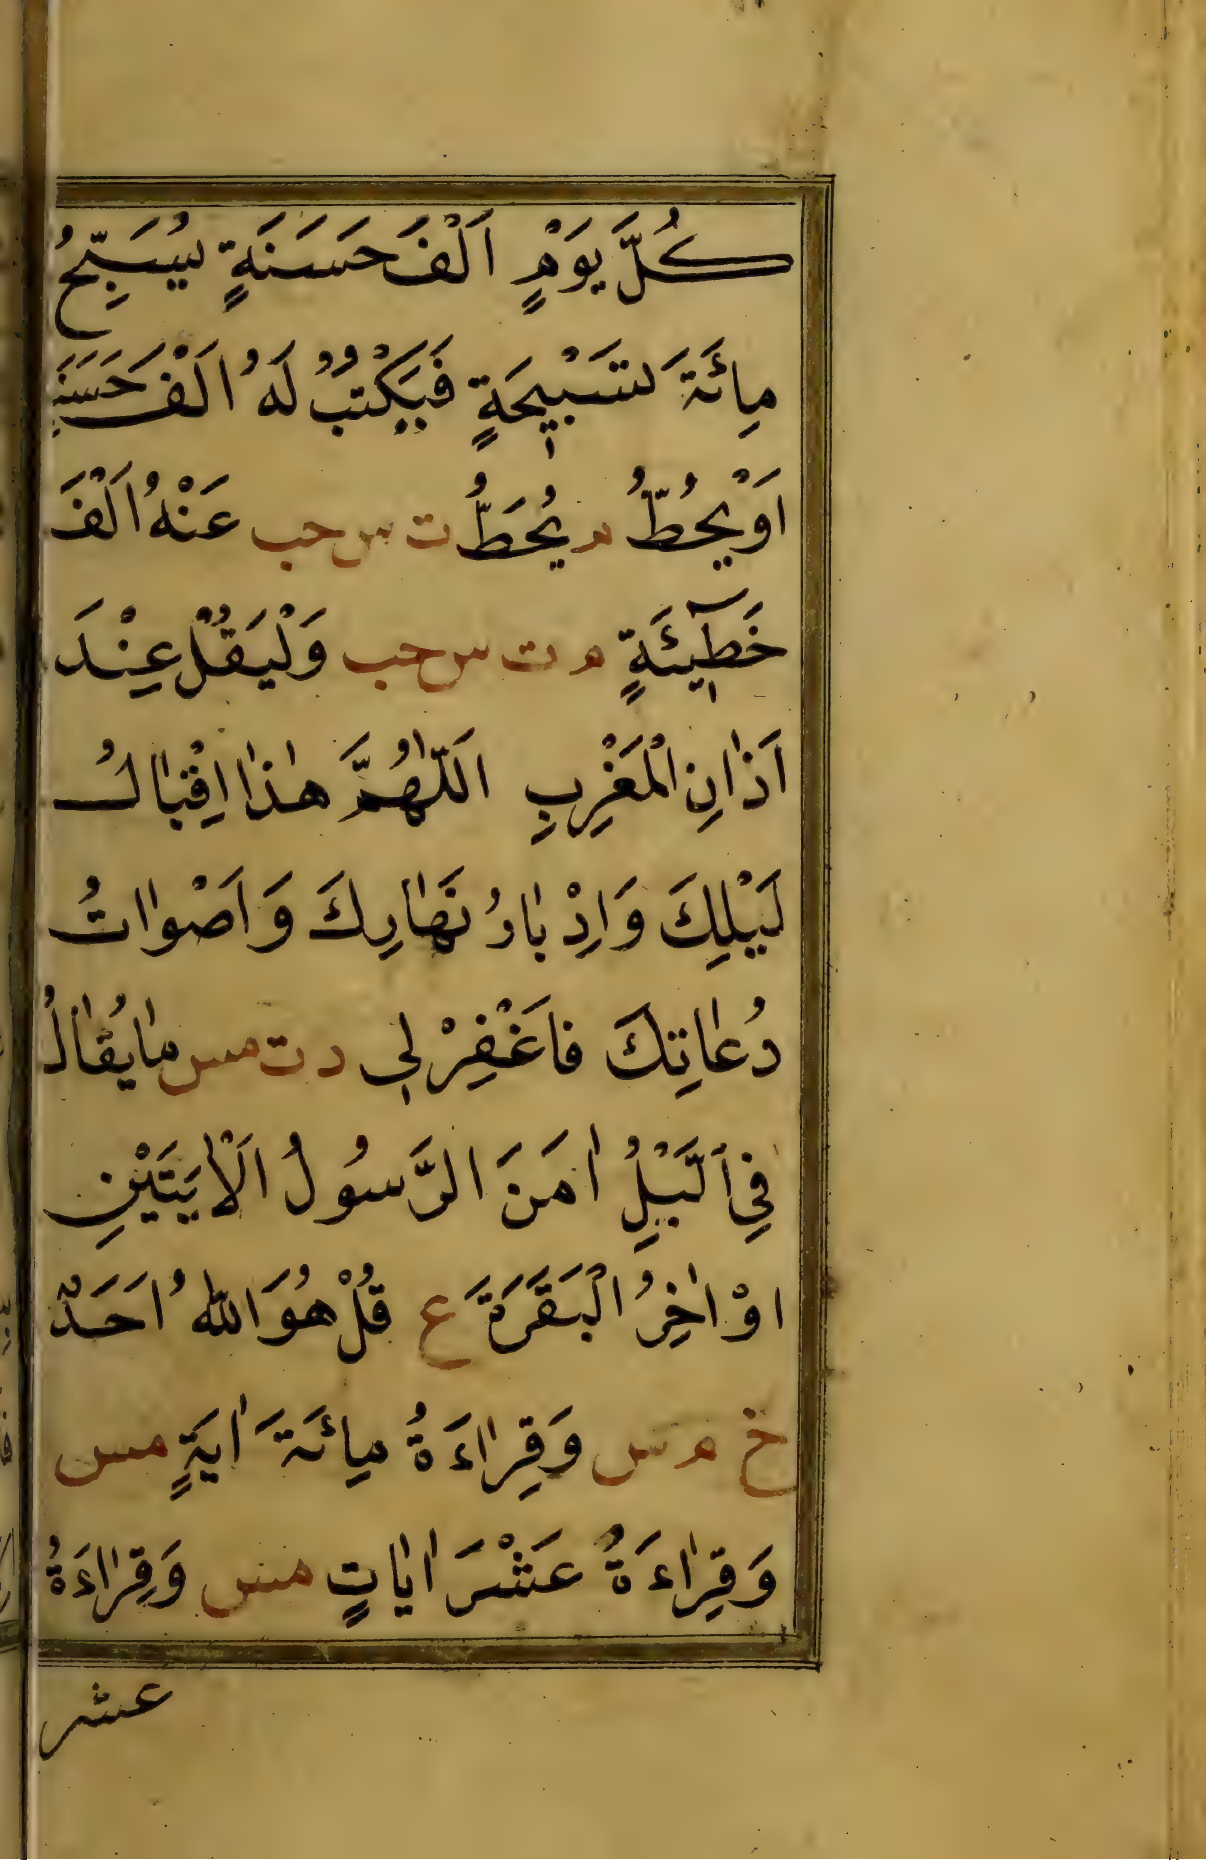 كُلَّ يَوْمٍ اَلْفَ حَسَنَةٍ يُسَبِّحُ
مِائَةَ تَسْبِيحَةٍ فَيَكْتُبُ لَهُ اَلْفَ حَسَنَةٍ
اَوْ يَحُطُّ م يُحَطُّ ت س حب عَنْهُ اَلْفَ
خَطِٓيئَةٍ م ت س حب وَلْيَقُلْ عِنْدَ
اَذَانِ الْمَغْرِبِ اَللّٰهُمَّ هٰذَا اِقْبَالُ
لَيْلِكَ وَاِدْبَارُ نَهَارِكَ وَاَصْوَاتُ
دُعَاتِكَ فَاغْفِرْ لِي د ت مس مَا يُقَالُ
فِي اللَّيْلِ اٰمَنَ الرَّسُولُ الْاٰيَتَيْنِ
اَوْاٰخِرُ الْبَقَرَةَ ع قُلْ هُوَ اللّٰهُ اَحَدٌ
خ م س وَقِرَاءَةُ مِائَةَ اٰيَةٍ مس
وَقِرَاءَةُ عَشْرَ اٰيَاتٍ مس وَقِرَاءَةُ
عشر